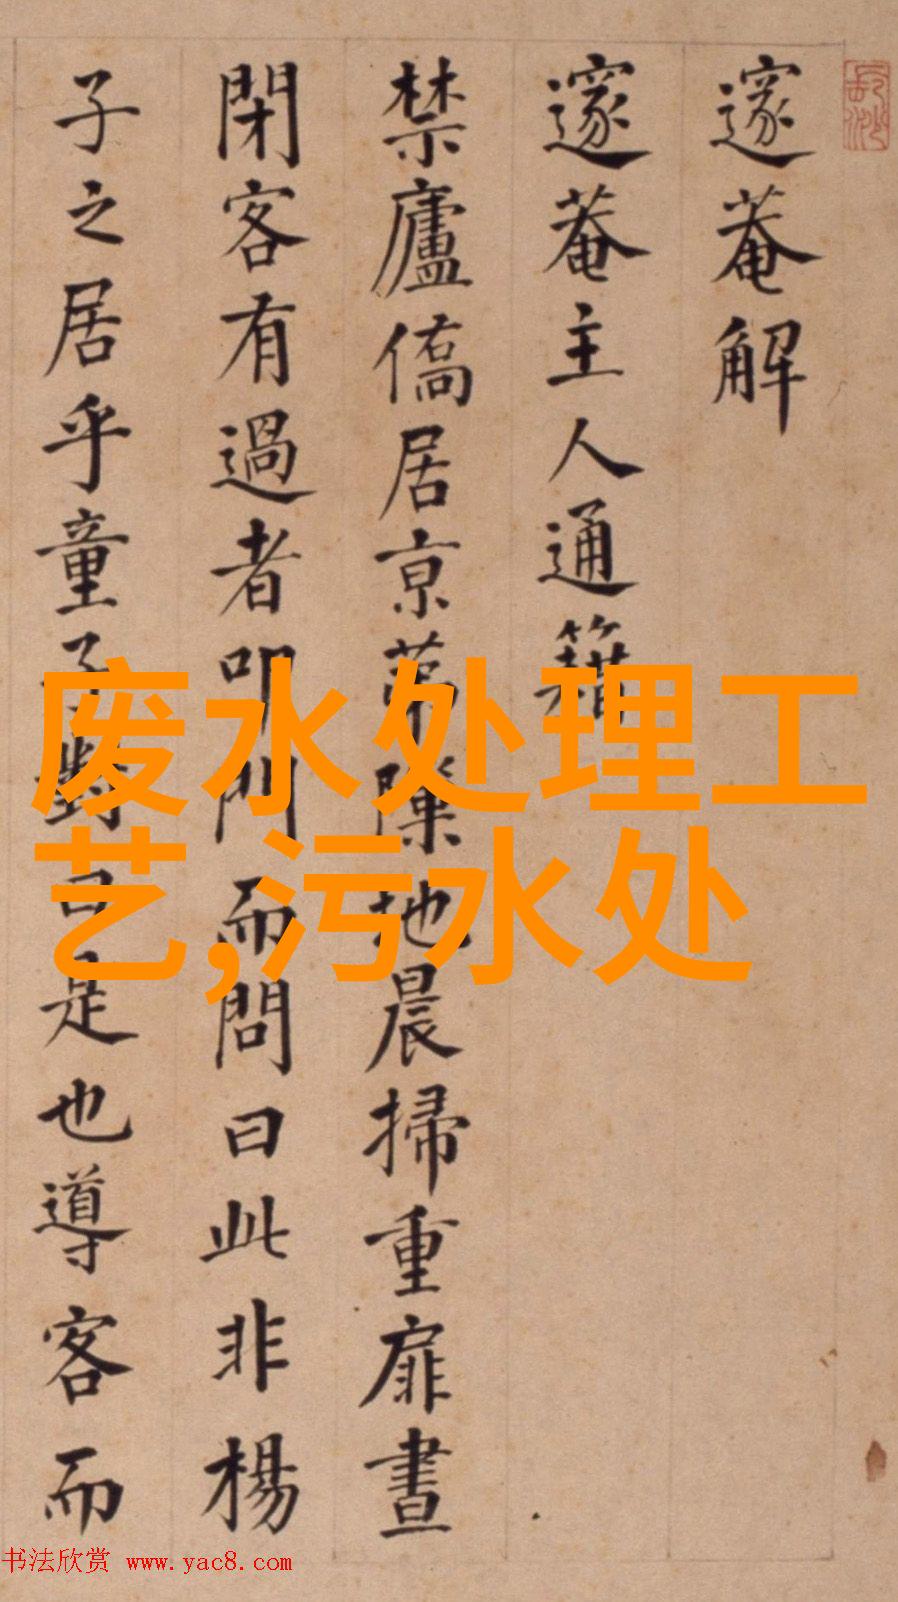 邃菴解
邃菴主人通籍
禁廬僑居京第隙地晨掃重扉晝
閉客有過者叩門而問曰此非楊
子之居乎童子對曰是也導客而
废水处理工
艺,污水处
书法欣赏 www.yac8.com